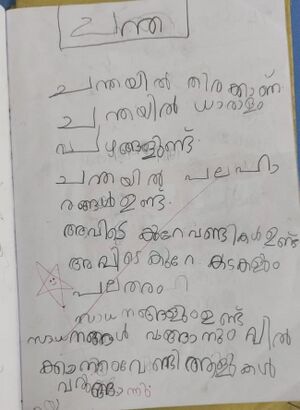 ചന്ത
ചന്തയിൽ തിരക്കാണ്
ചന്തയിൽ ധാരാളം
പഴങ്ങളുണ്ട്.
ചന്തയിൽ പലഹാ
രങ്ങൾ ഉണ്ട്.
അവിടെ കുറേ വണ്ടികൾ ഉണ്ട്
അവിടെ കുറേ കടകളും
പലതരം
സാധനങ്ങളും ഉണ്ട്
സാധനങ്ങൾ വാങ്ങാനും വിൽ
ക്കാനും വേണ്ടി ആളുകൾ